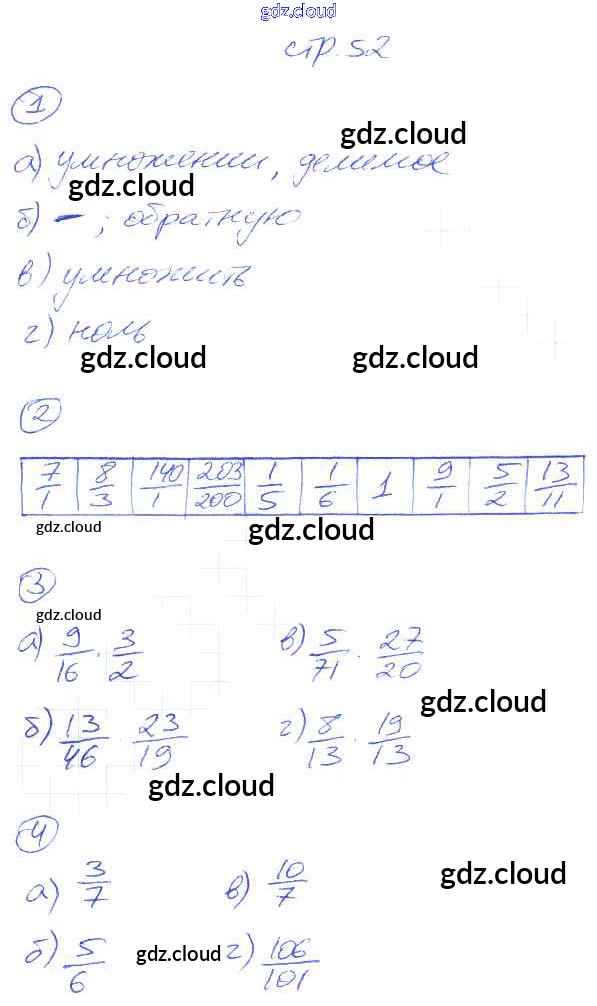 gdz.cloud
стр. 52
1
gdz.cloud
а) умножении, делимое
gdz.cloud
б) - ; обратную
в) умножить
г) ноль
gdz.cloud gdz.cloud
2
7/1 8/3 140/1 203/200 1/5 1/6 1 9/1 5/2 13/11
gdz.cloud gdz.cloud
3
gdz.cloud
а) 9/16 · 3/2 в) 5/71 · 27/20
gdz.cloud
б) 13/46 · 23/19 г) 8/13 · 19/13
gdz.cloud
4
а) 3/7 в) 10/7
gdz.cloud
б) 5/6 gdz.cloud г) 106/101